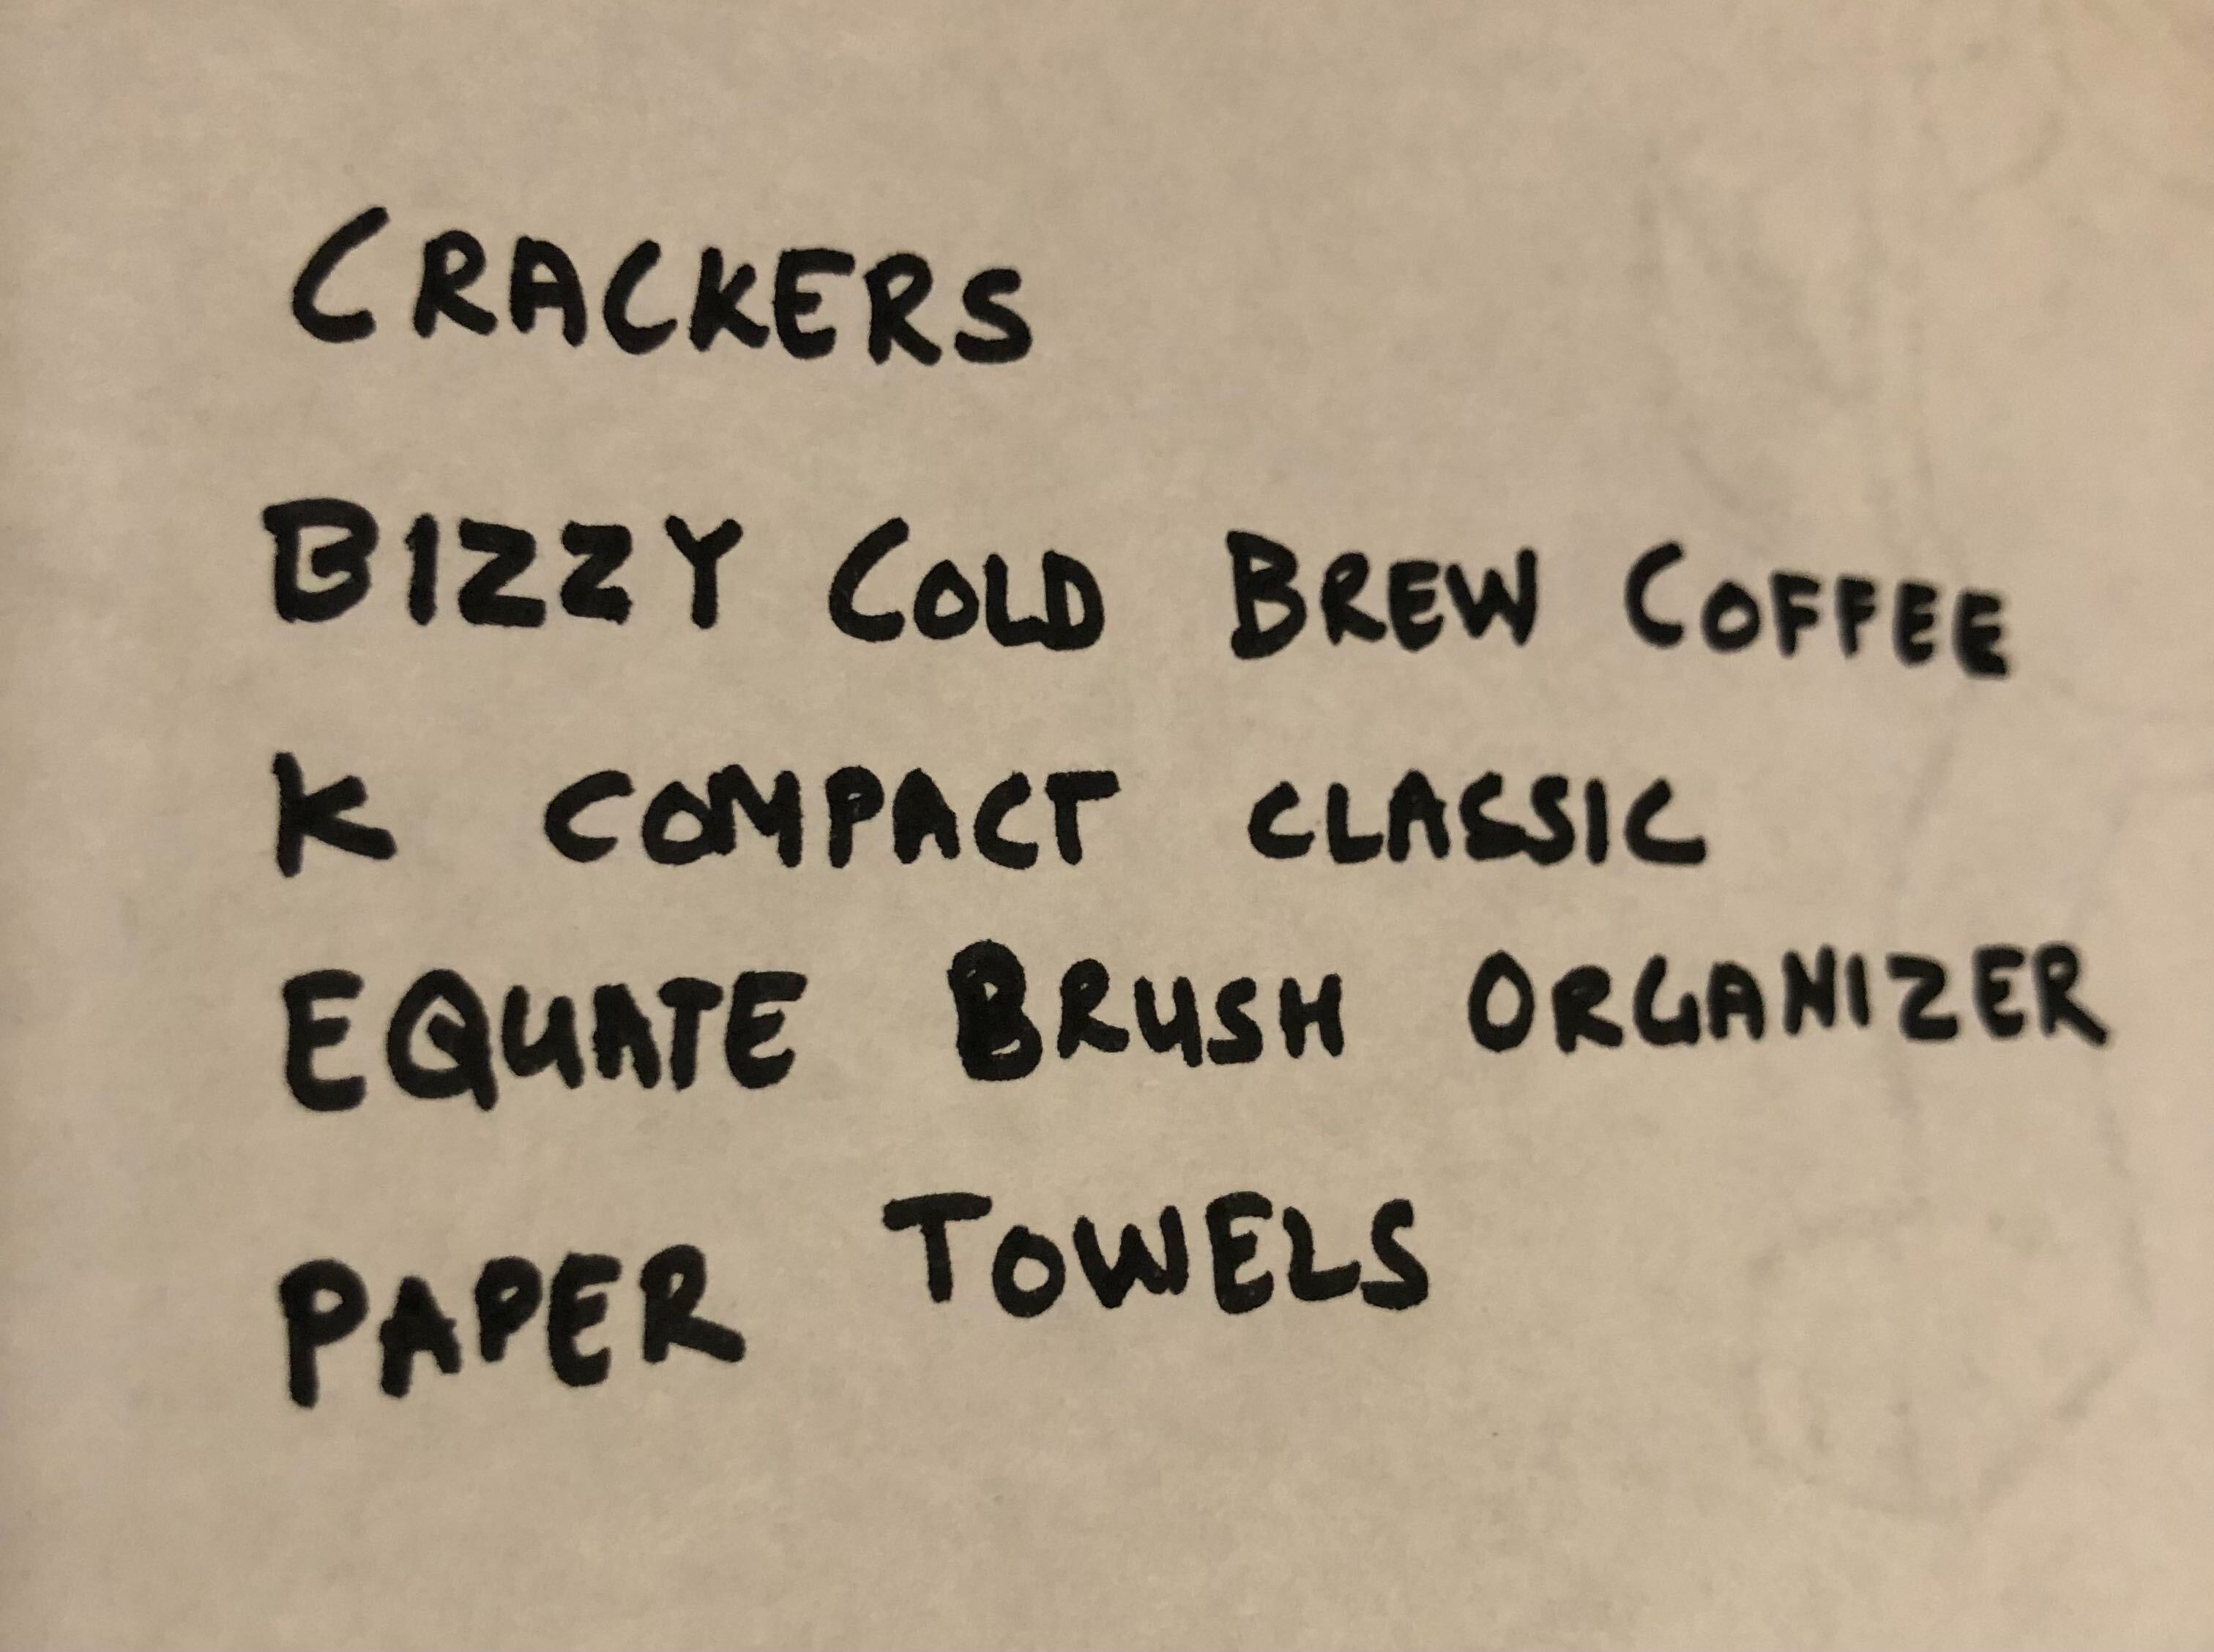 CRACKERS
BIZZY COLD BREW COFFEE
K COMPACT CLASSIC
EQUATE BRUSH ORGANIZER
PAPER TOWELS